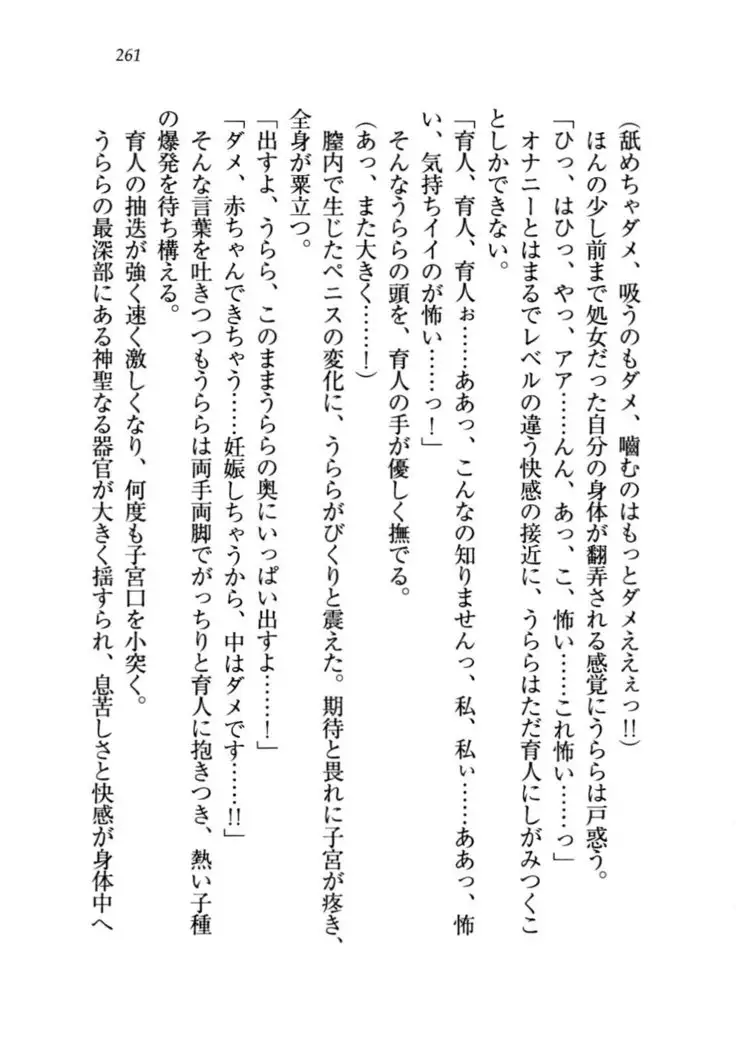 261
(舐めちゃダメ、吸うのもダメ、嚙むのはもっとダメええぇっ!!)
ほんの少し前まで処女だった自分の身体が翻弄される感覚にうららは戸惑う。
「ひっ、はひっ、やっ、アア……んん、あっ、こ、怖い……これ怖い……っ」
オナニーとはまるでレベルの違う快感の接近に、うららはただ育人にしがみつくこ
としかできない。
「育人、育人、育人ぉ……ああっ、こんなの知りませんっ、私、私ぃ……ああっ、怖
い、気持ちイイのが怖い……っ！」
そんなうららの頭を、育人の手が優しく撫でる。
(あっ、また大きく……！)
膣内で生じたペニスの変化に、うららがびくりと震えた。期待と畏れに子宮が疼き、
全身が粟立つ。
「出すよ、うらら、このままうららの奥にいっぱい出すよ……！」
「ダメ、赤ちゃんできちゃう……妊娠しちゃうから、中はダメです……!!」
そんな言葉を吐きつつもうららは両手両脚でがっちりと育人に抱きつき、熱い子種
の爆発を待ち構える。
育人の抽迭が強く速く激しくなり、何度も子宮口を小突く。
うららの最深部にある神聖なる器官が大きく揺すられ、息苦しさと快感が身体中へ